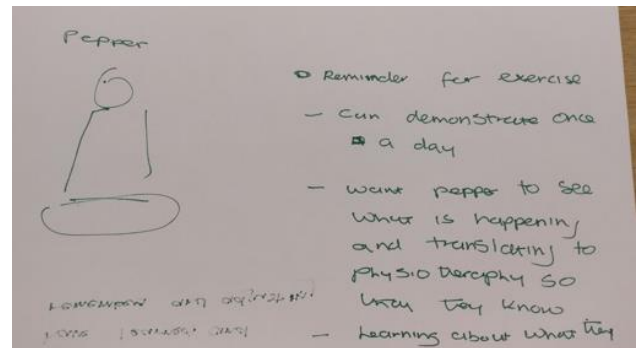 Pepper
Reminder for exercise
- can demonstrate once
a day
- want pepper to see
what is happening
and translating to
physio theraphy so
they know
- Learning about what they